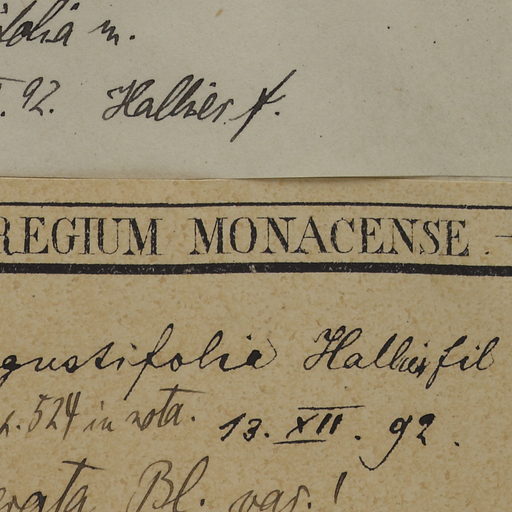 ifolia m.
. 92. Hallier f.
REGIUM MONACENSE -
gustifolia Hallier fil
p. 524 in nota. 13. XII. 92.
erata Bl. var. !